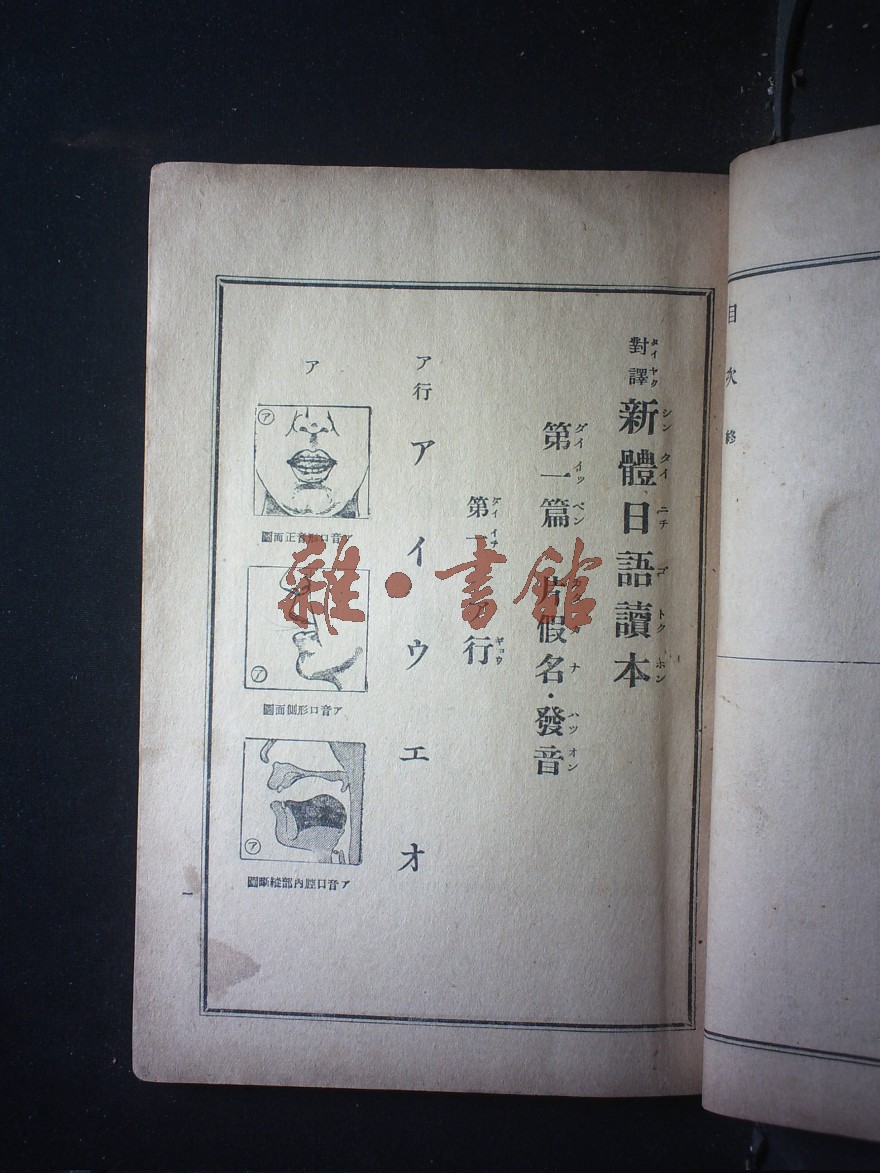 目次 修
タイヤク シン タイ ニチ ゴ トク ホン
對譯 新體日語讀本
ダイ イッ ペン ナ ハツ オン
第一篇 片假名・發音
ダイ イチ ギョウ
第一 行
ア行 アイウエオ
ア
ア
ア音口形正面圖
ア
ア音口形側面圖
ア
ア音口腔內部縱斷圖
一
雜・書館